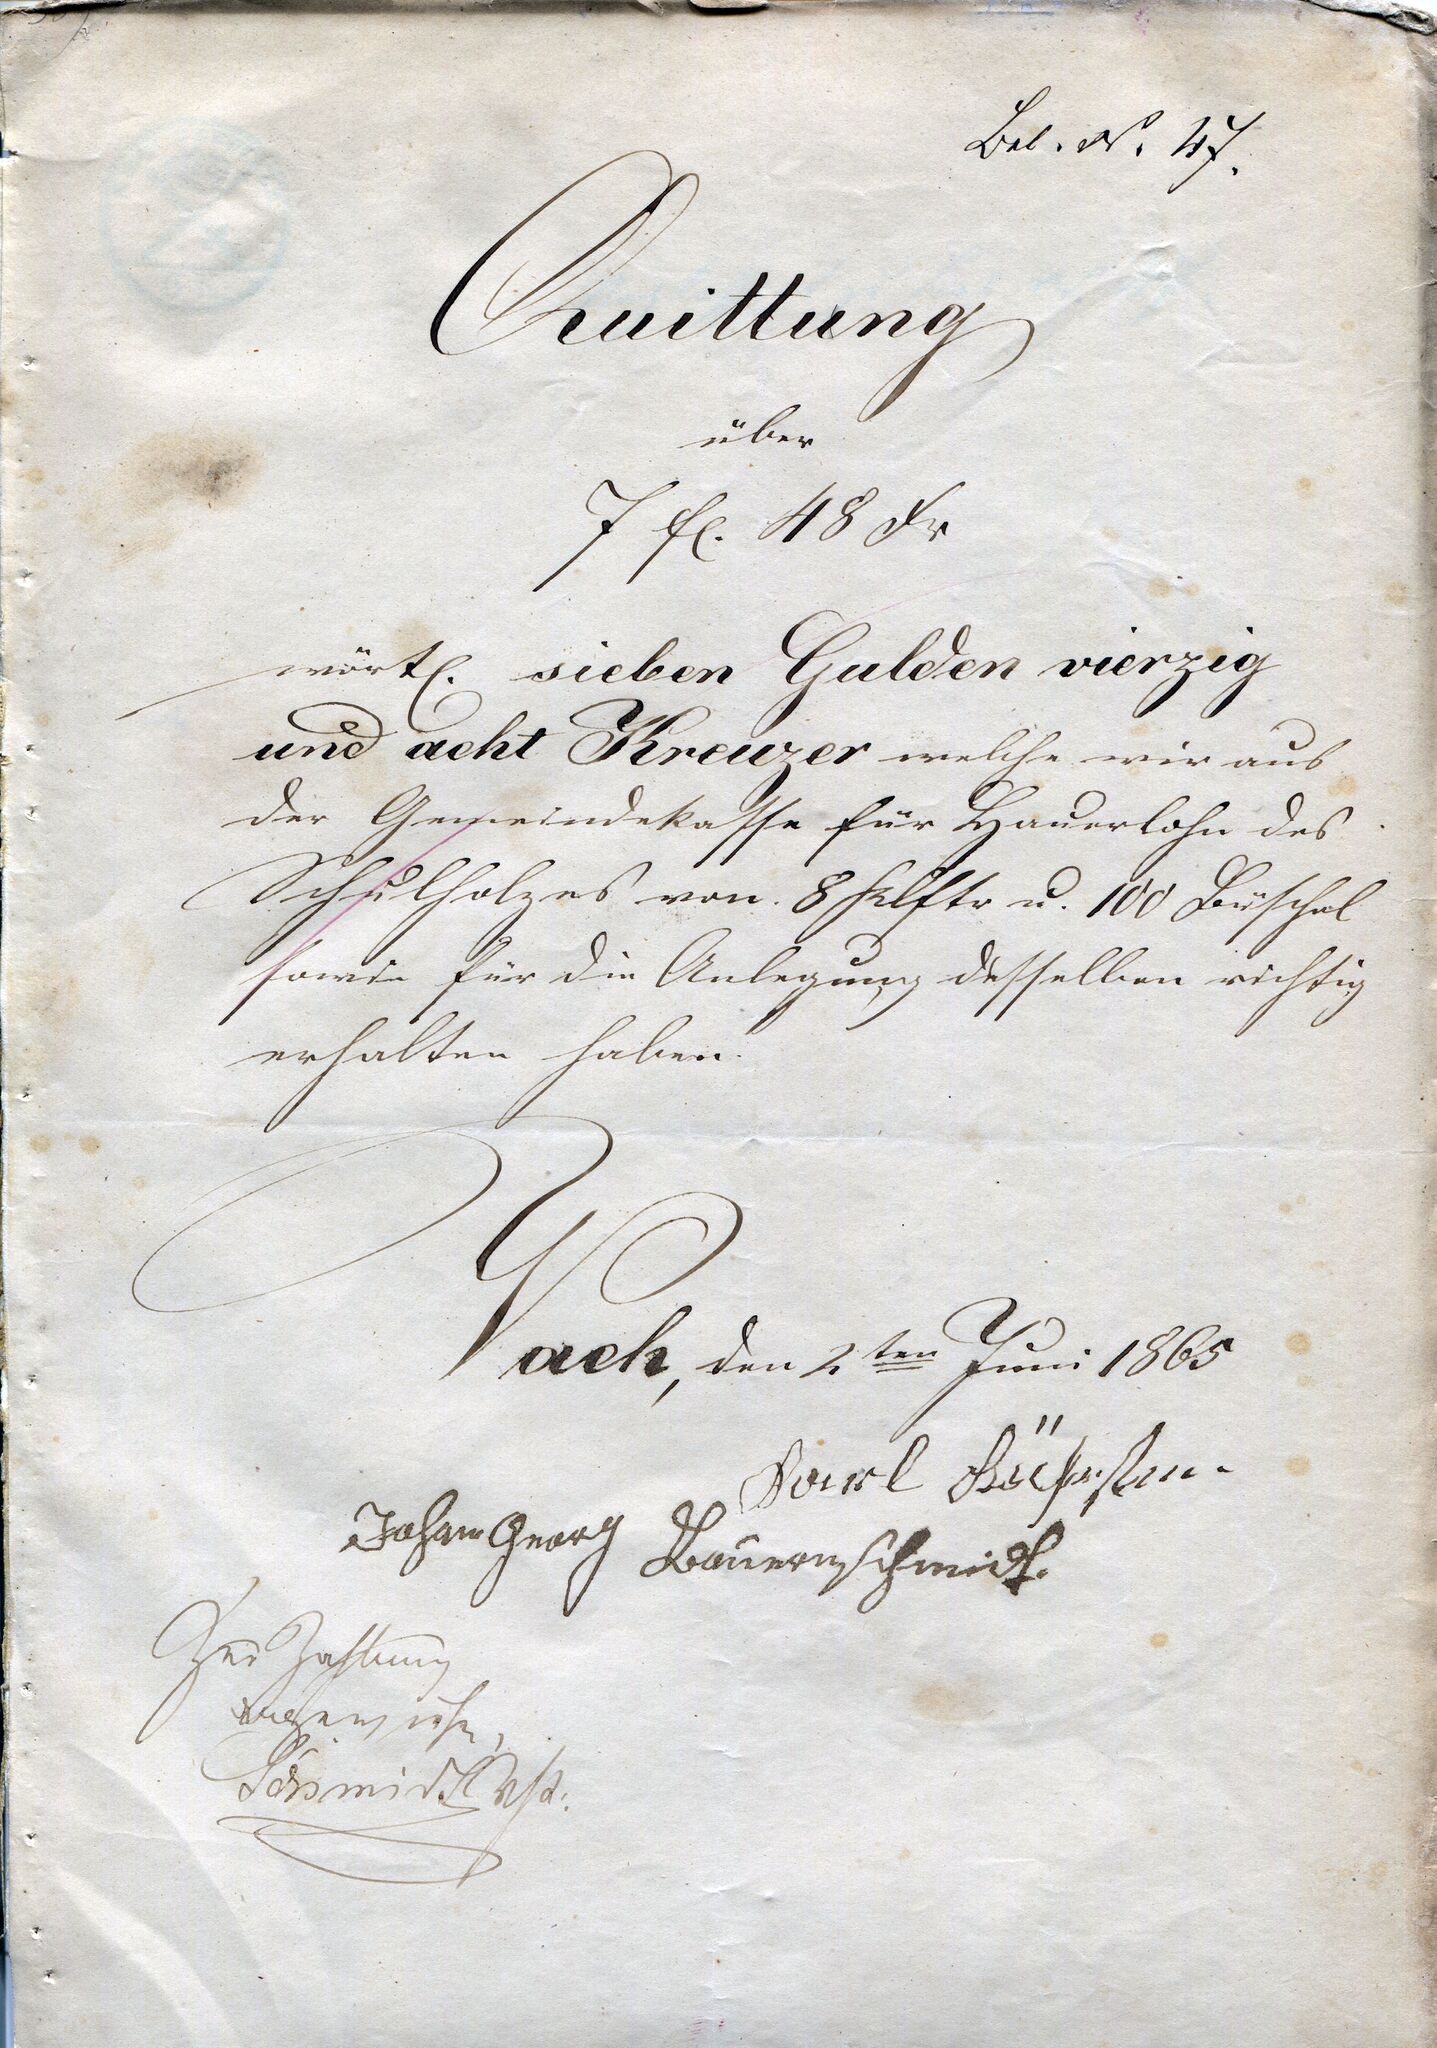 Bel. N. 47.
Quittung
über
7 fl. 48 Kr
wörtl. sieben Gulden vierzig
und acht Kreuzer welche wir aus
der Gemeindekasse für Hauerlohn des
Schulholzes von 8 Klftr u. 100 Büschel
sowie für die Anlegung desselben richtig
erhalten haben.
Vach, den 2ten Juni 1865
Johann Georg Bauernschmidt.
Zur Zahlung
Schmidt Vst.